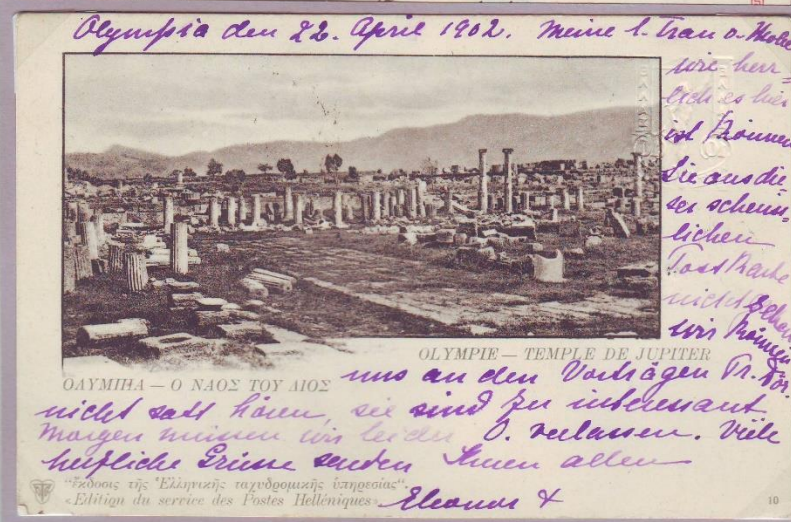 Olympia den 22. April 1902. Meine l. Frau v.
wie herr=
lich es hier
ist können
Sie aus die=
ser scheus=
lichen
Postkarte
nicht sehen
wir können
OLYMPIE — TEMPLE DE JUPITER
ΟΛΥΜΠΙΑ — Ο ΝΑΟΣ ΤΟΥ ΔΙΟΣ
uns an den Vorträgen Pr. Dör.
nicht satt hören, sie sind zu interessant
Morgen müssen wir leider O. verlassen. Viele
herzliche Grüsse senden Ihnen allen
"ἔκδοσις τῆς Ἑλληνικῆς ταχυδρομικῆς ὑπηρεσίας".
«Edition du service des Postes Helléniques».
Eleonor
10